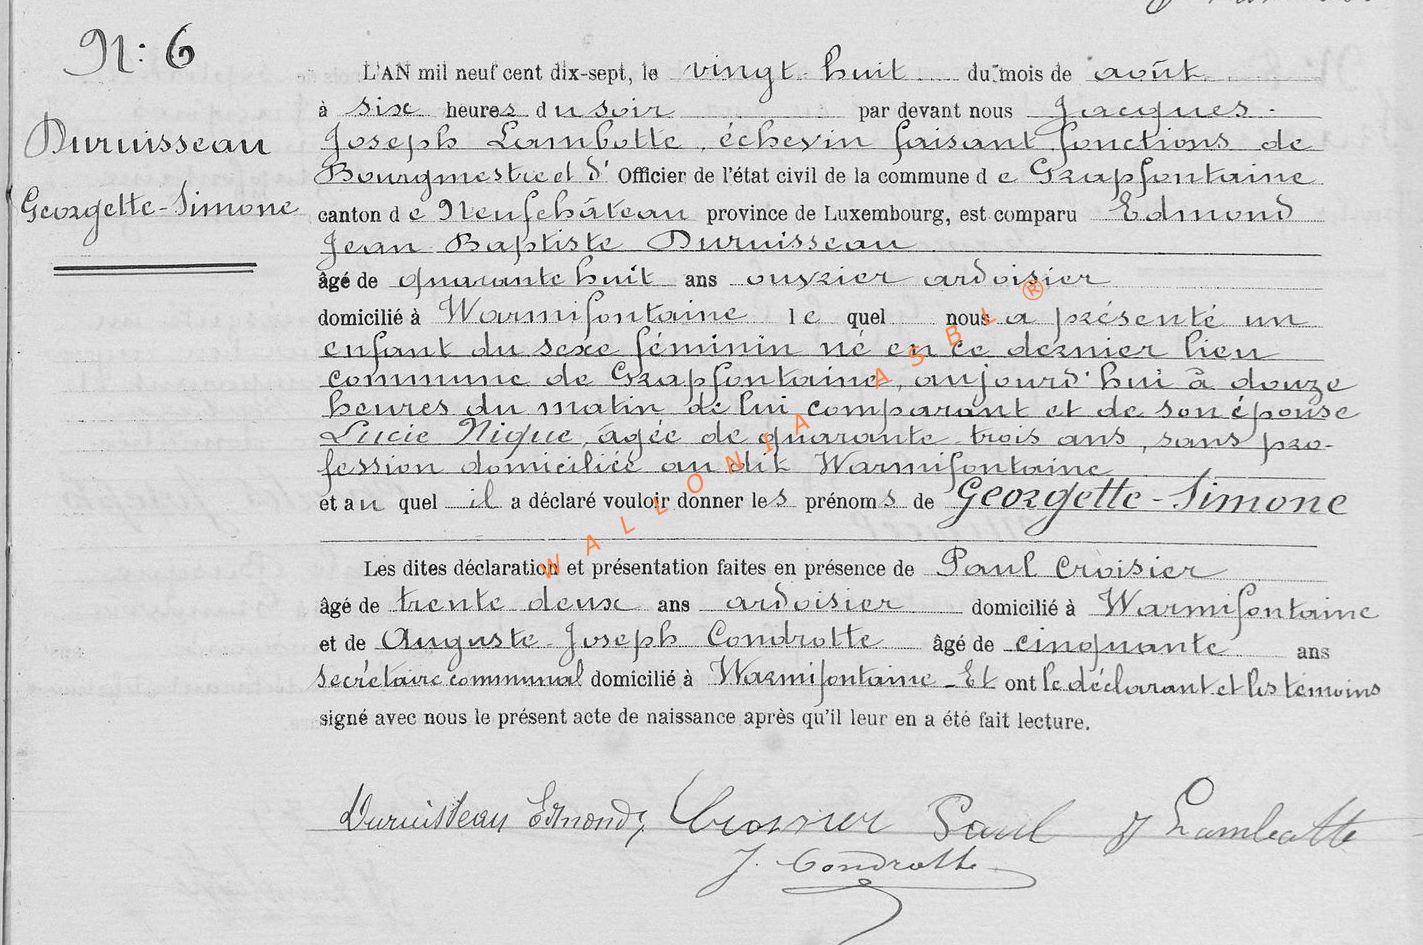 N: 6
Duruisseau
Georgette-Simone
L'AN mil neuf cent dix-sept, le vingt-huit du mois de août
à six heures du soir par devant nous Jacques-
Joseph Lambotte, échevin faisant fonctions de
Bourgmestre et d' Officier de l'état civil de la commune de Grapfontaine
canton de Neufchâteau province de Luxembourg, est comparu Edmond
Jean Baptiste Duruisseau
âgé de quarante huit ans ouvrier ardoisier
domicilié à Warmifontaine le quel nous a présenté un
enfant du sexe féminin né en ce dernier lieu
commune de Grapfontaine, aujourd'hui à douze
heures du matin de lui comparant et de son épouse
Lucie Nique, agée de quarante-trois ans, sans pro-
fession domiciliée au dit Warmifontaine
et au quel il a déclaré vouloir donner les prénoms de Georgette-Simone
Les dites déclaration et présentation faites en présence de Paul Croisier
âgé de trente deux ans ardoisier domicilié à Warmifontaine
et de Auguste-Joseph Condrotte âgé de cinquante ans
secrétaire communal domicilié à Warmifontaine - Et ont le déclarant et les témoins
signé avec nous le présent acte de naissance après qu'il leur en a été fait lecture.
Duruisseau Edmond Croisier Paul J Lambotte
J. Condrotte
WALLONIA ASBL ®